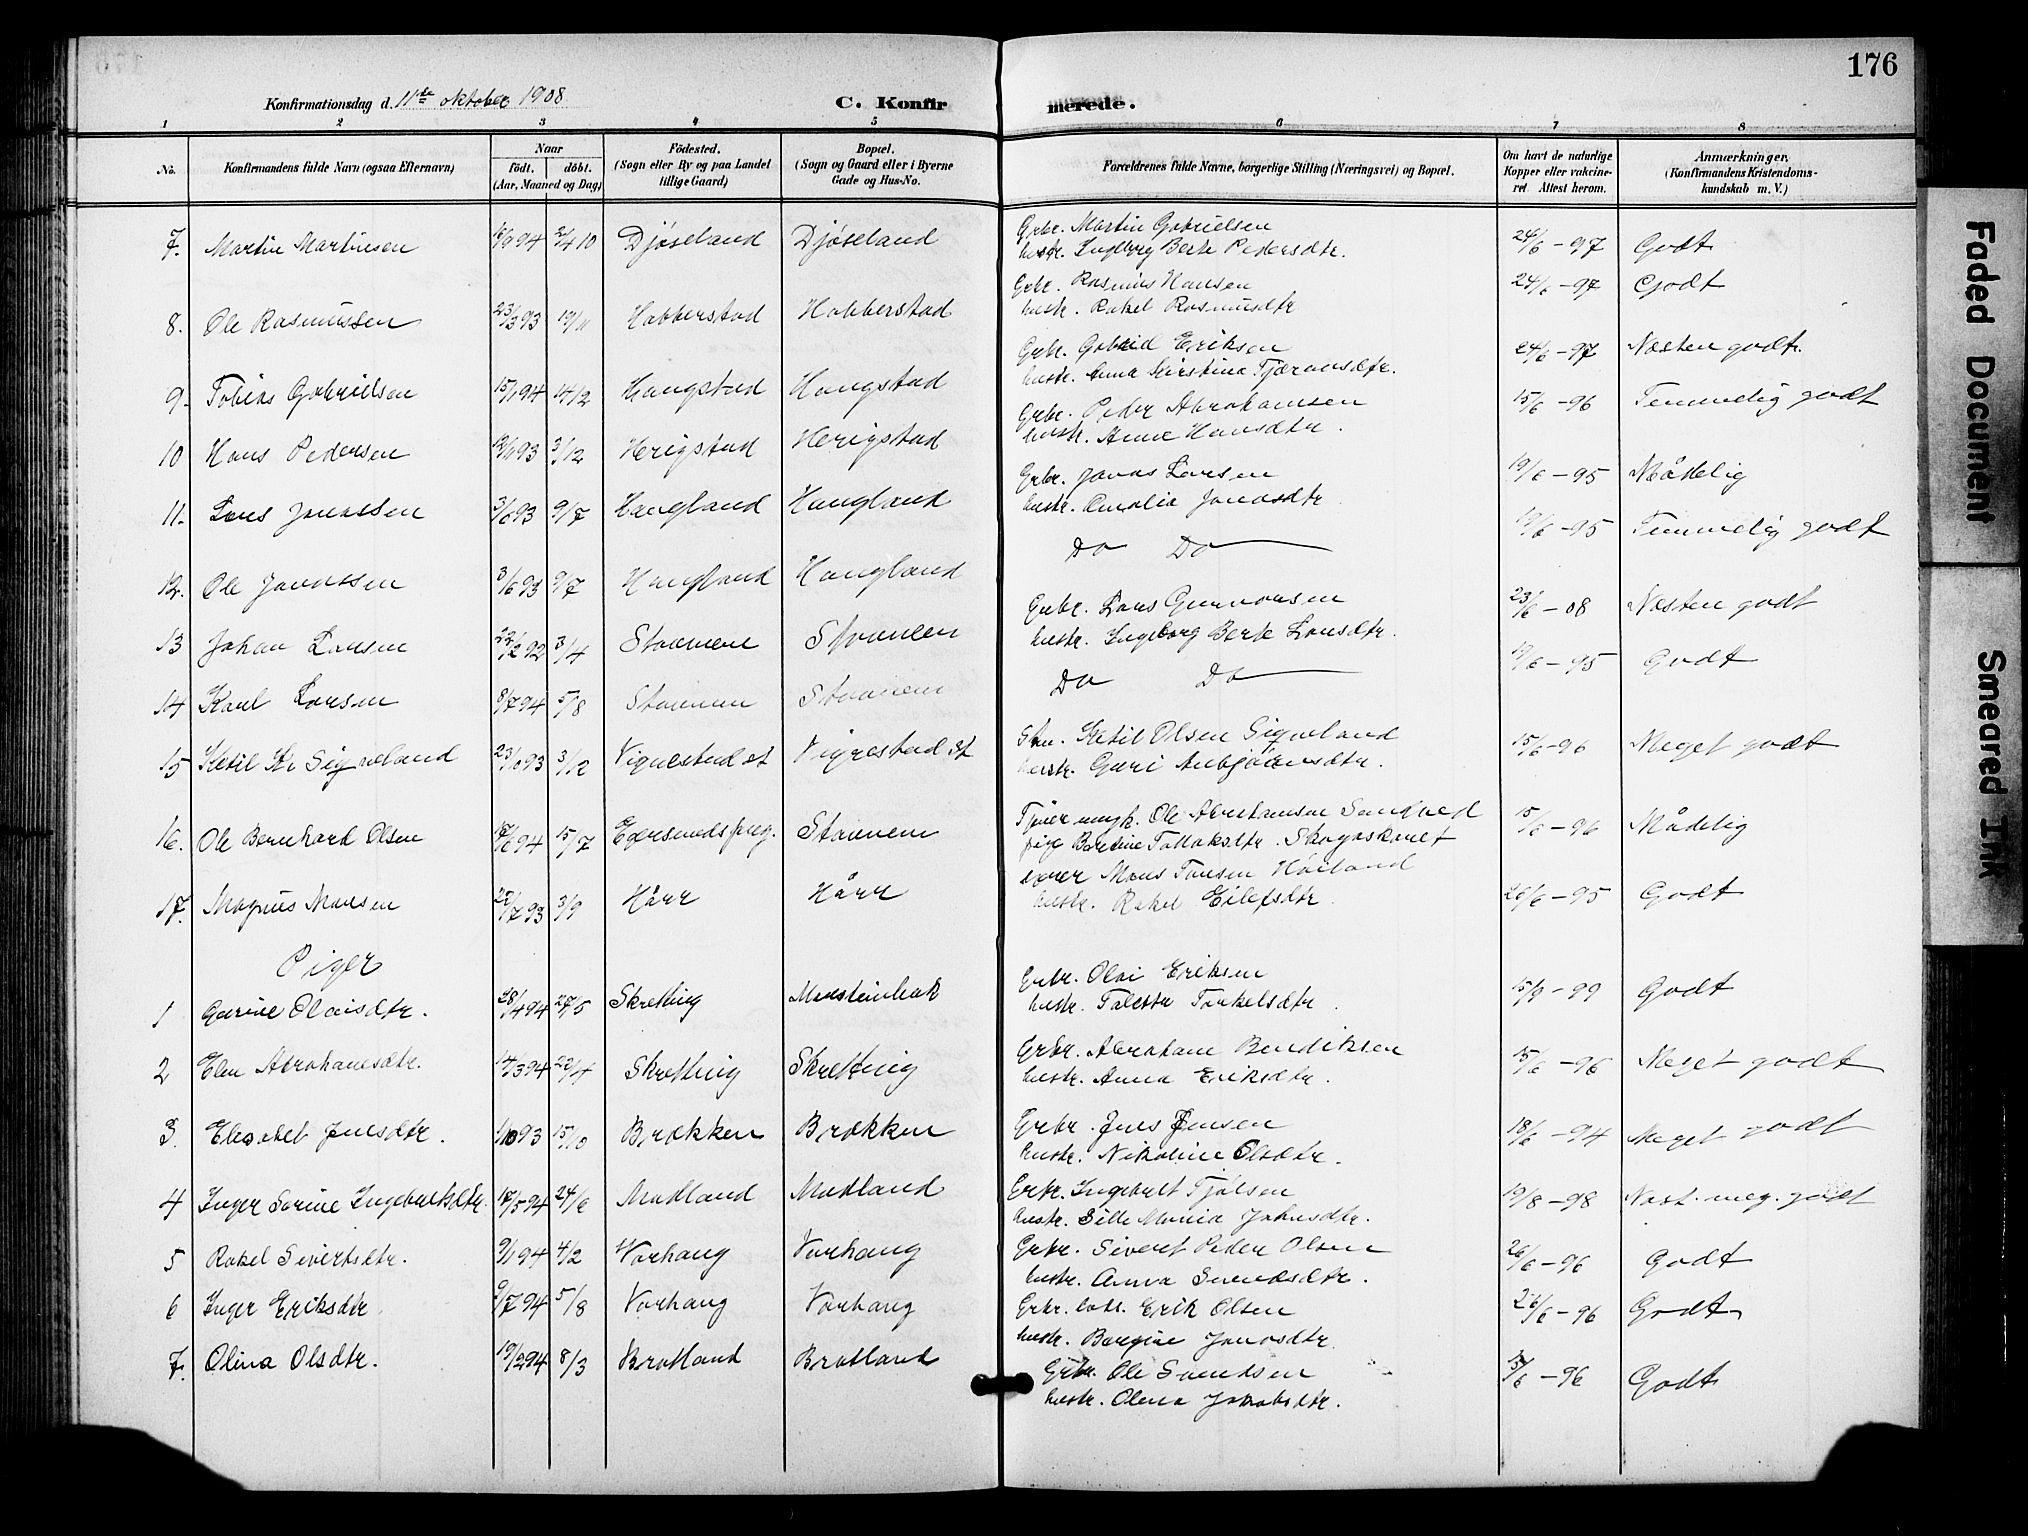 176
Konfirmationsdag d. 11te oktober 1908
C. Konfirmerede.
1 2 3 4 5 6 7 8
No.
Konfirmandens fulde Navn (ogsaa Efternavn)
Naar
født. døbt.
(Aar, Maaned og Dag)
Fødested.
(Sogn eller By og paa Landet
tillige Gaard)
Bopæl.
(Sogn og Gaard eller i Byerne
Gade og Hus-No.
Forældrenes fulde Navne, borgerlige Stilling (Næringsvei) og Bopæl.
Om havt de naturlige
Kopper eller vakcineret
Attest herom.
Anmærkninger.
(Konfirmandens Kristendomskundskab
m. V.)
7. Martin Martinsen Djøseland Djøseland Grbr. Martin Gabrielsen 24/6 - 97 Godt
hustr. Ingeborg Berte Pedersdtr.
8. Ole Rasmussen 23/3 93 Hobberstad Hobberstad Grbr. Rasmus Hansen 24/6 - 97 Godt
hustr. Rakel Rasmusdtr
9. Tobias Gabrielsen 15/1 94 14/2 Haugstad Haugstad Grbr. Gabriel Eriksen 24/6 - 97 Næsten godt.
hustr. Anna Kirstina Tjæransdtr.
10 Hans Pedersen 3/12 Herigstad Herigstad Grbr. Peder Abrahamsen 15/6 - 96 Temmelig godt
hustr. Anne Hansdtr.
11. Lars Jonassen 3/6 93 9/7 Haugland Haugland Grbr. Jonas Larsen 19/6 - 95 Mådelig
hustr. Amalia Jonasdtr
12. Ole Jonassen 3/6 93 9/7 Haugland Haugland Do Do 19/6 - 95 Temmelig godt
13 Johan Larsen 22/2 92 3/4 Stavnem Stavnem Grbr. Lars Gunvorsen 23/6 - 08 Næsten godt
hustr. Ingeborg Berte Larsdtr.
14 Karl Larsen 8/7 94 5/8 Stavnem Stavnem Do Do 19/6 - 95 Godt
15 Ketil K. Signeland 23/10 93 3/12 Vigrestad st Vigrestad st Ketil Olsen Signeland 15/6 - 96 Meget godt
hustr. Guri Anbjørnsdtr.
16. Ole Bernhard Olsen 17/6 94 15/7 Egersunds preg. Stavnem Ole Abrahamsen Sandved 15/6 - 96 Mådelig
pige Bertine Tollaksdtr.
17. Magnus Monsen 22/7 93 3/9 Hårr Hårr Mons Tonsen Høiland 26/6 - 95 Godt
hustr. Rakel Eilefsdtr
Piger
1 Gurine Olaisdtr. 28/4 94 27/5 Skretting Grbr. Olai Eriksen 15/9 - 99 Godt
hustr. Talette Torkelsdtr.
2 Elen Abrahamsdtr. 14/3 94 22/4 Skretting Skretting Grbr. Abraham Bendiksen 15/6 - 96 Meget godt
hustr. Anna Eriksdtr.
3. Elisabet Jensdtr. 15/10 Brækken Brækken Grbr. Jens Jensen 18/6 - 94 Meget godt
hustr. Nikoline Olsdtr.
4 Inger Serine Ingebretsdtr. 17/5 94 24/6 Madland Madland Grbr. Ingebret Tjølsen 19/8 - 98 Næst. meg. godt
hustr. Sille Maria Johnsdtr.
5 Rakel Sivertsdtr. 9/1 94 4/2 Varhaug Varhaug Grbr. Siveret Peder Olsen 26/6 - 96 Godt
hustr. Anna Svendsdtr.
6 Inger Eriksdtr. 9/7 94 5/8 Varhaug Varhaug Grbr. Erik Olsen 26/6 - 96 Godt
hustr. Bergine Jonasdtr.
7. Olina Olsdtr. 19/2 94 8/3 Bratland Bratland Grbr. Ole Svendsen 15/6 - 96 Godt
hustr. Olena Jakobsdtr.
Faded Document
Smeared Ink